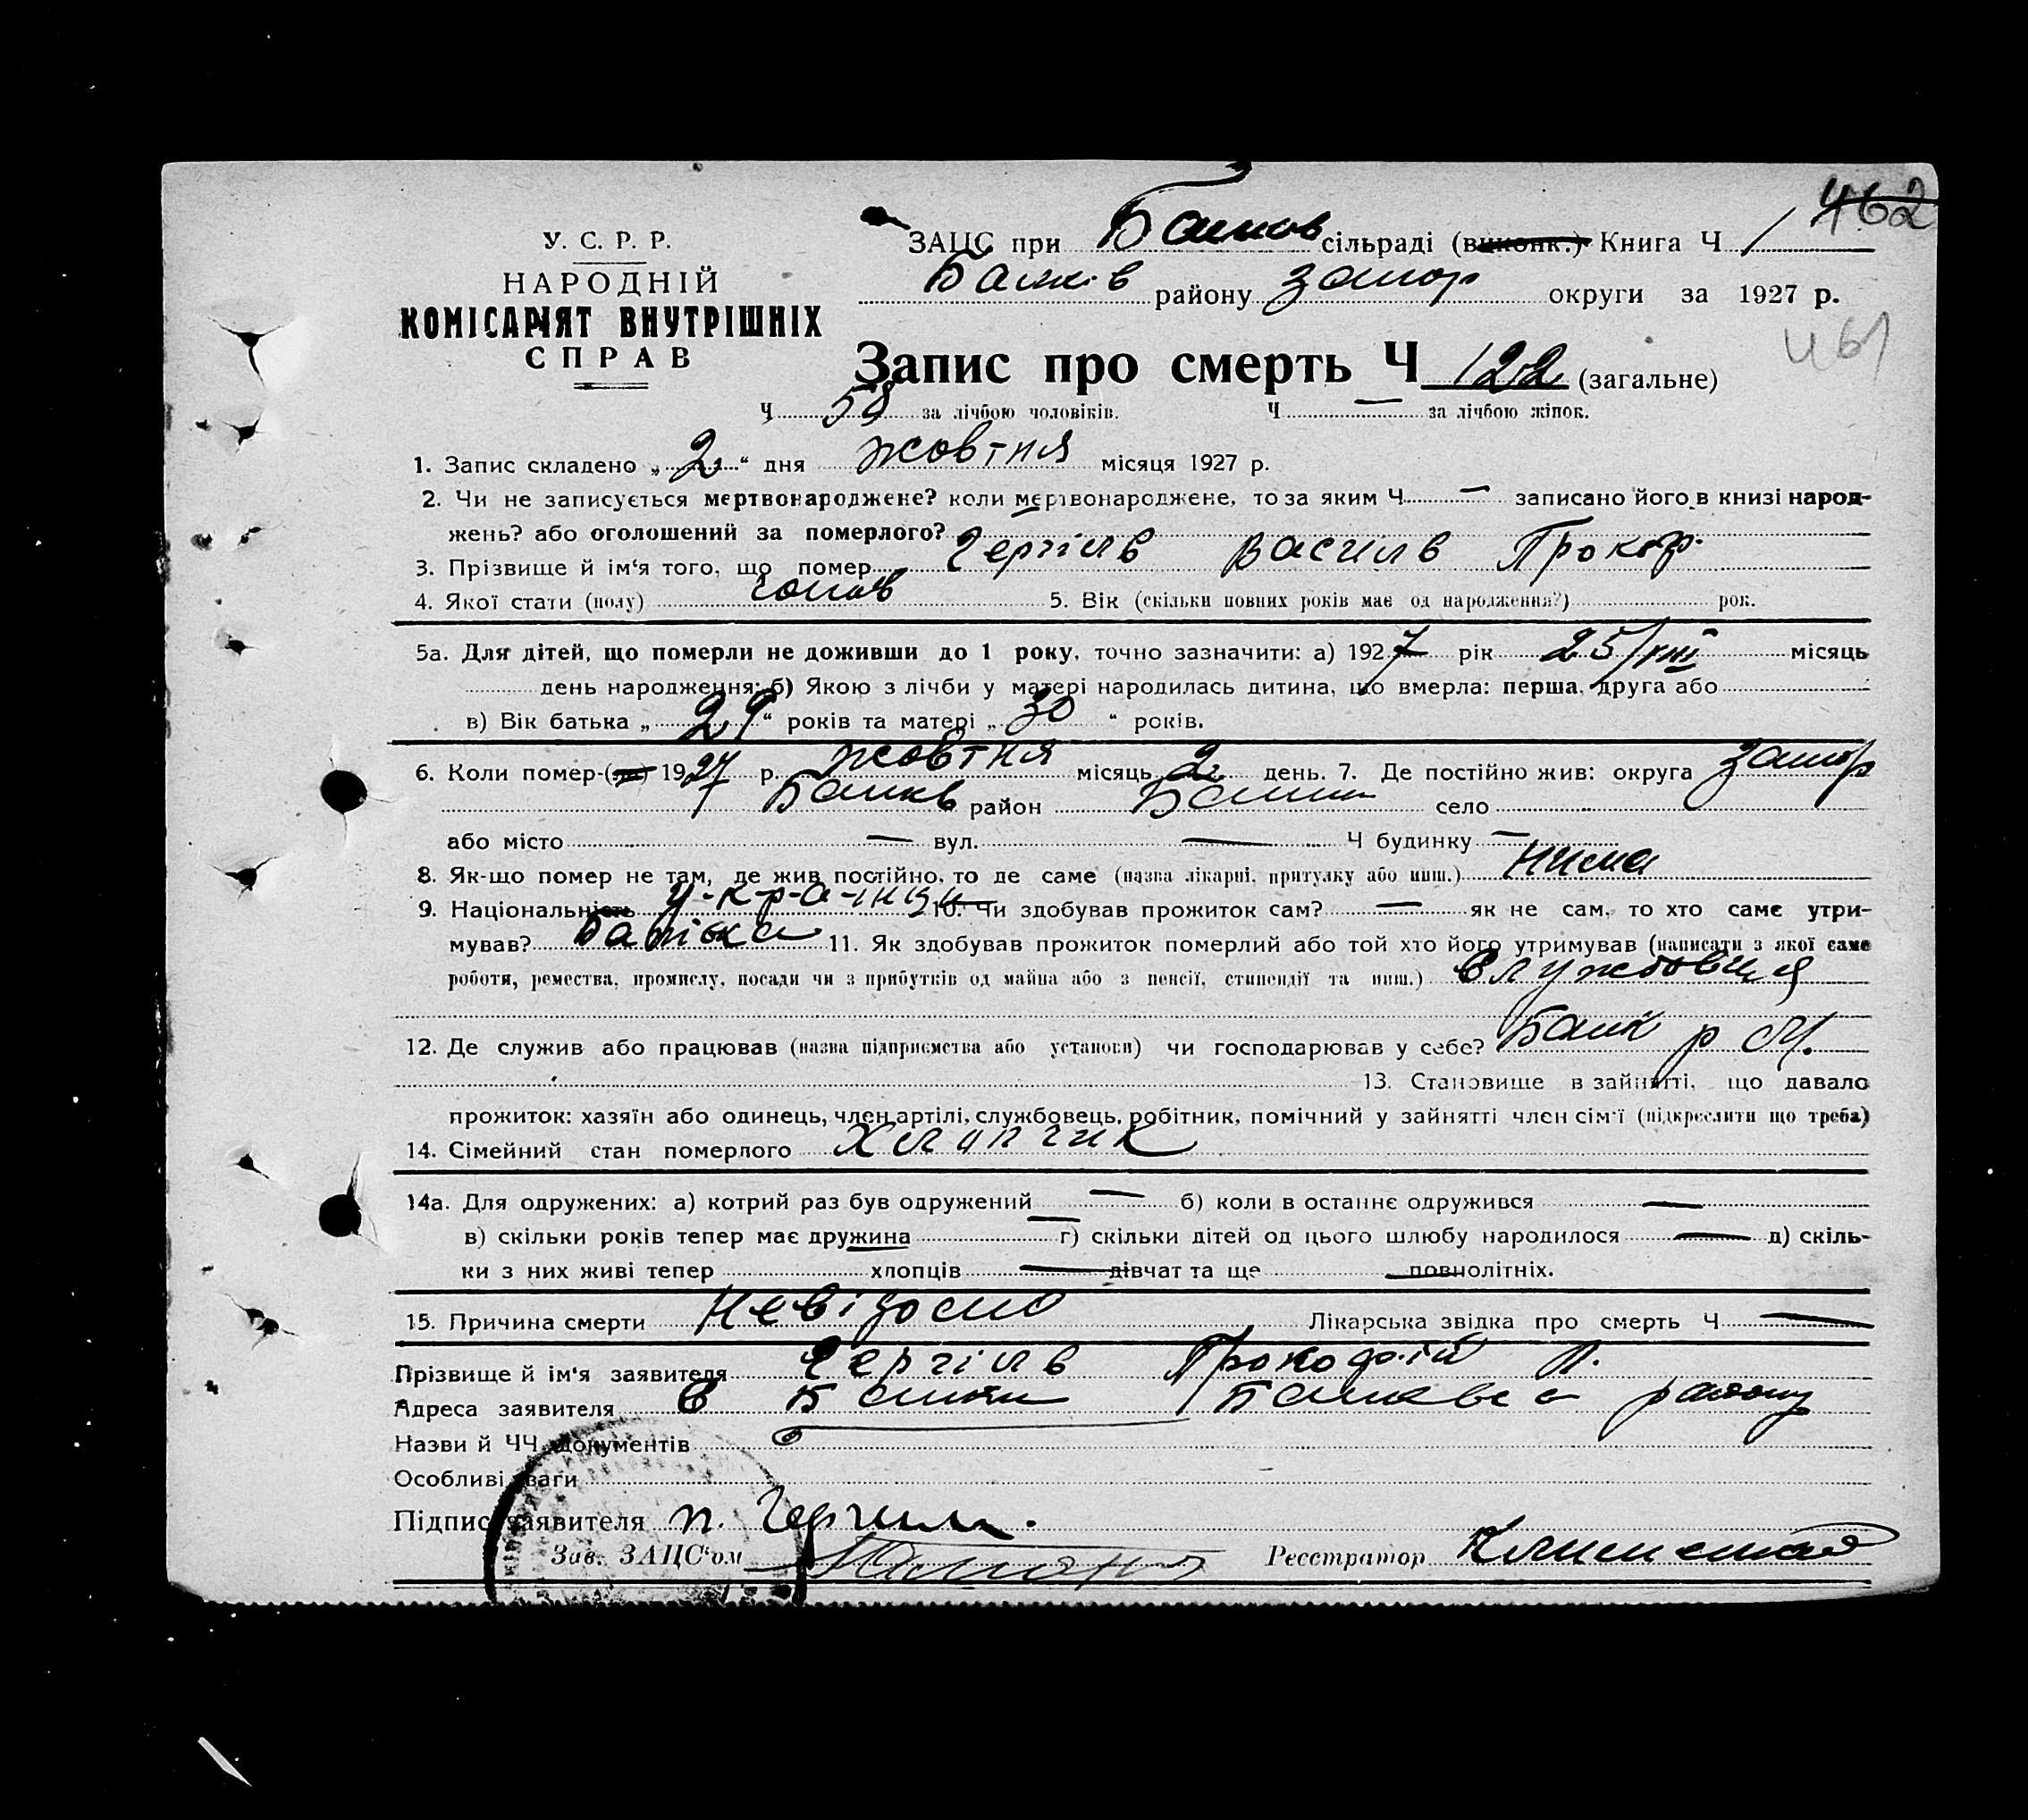 462
У. С. Р. Р.
НАРОДНІЙ
КОМІСАРІЯТ ВНУТРІШНІХ
СПРАВ
ЗАЦС при Балков сільраді (виконк.) Книга Ч 1
Балків району Запор округи за 1927 р.
461
Запис про смерть Ч 122 (загальне)
Ч 58 за лічбою чоловіків. Ч — за лічбою жінок.
1. Запис складено „ 2 “ дня жовтня місяця 1927 р.
2. Чи не записується мертвонароджене? коли мертвонароджене, то за яким Ч — записано його в книзі народ-
жень? або оголошений за померлого?
3. Прізвище й ім‘я того, що помер Чергіль Василь Прокоф.
4. Якої стати (полу) чолов 5. Вік (скільки повних років має од народження?) рок.
5а. Для дітей, що померли не доживши до 1 року, точно зазначити: а) 1927 рік 25/VIII місяць
день народження; б) Якою з лічби у матері народилась дитина, що вмерла: перша, друга або
в) Вік батька „ 29 “ років та матері „ 30 “ років.
6. Коли помер-(ла) 1927 р. жовтня місяць 2 день. 7. Де постійно жив: округа Запор
Балків район Балки село
або місто — вул. — Ч будинку —
8. Як-що помер не там, де жив постійно, то де саме (назва лікарні, притулку або инш.) нима
9. Національність 10. Чи здобував прожиток сам? — як не сам, то хто саме утри-
мував? Батько 11. Як здобував прожиток померлий або той хто його утримував (написати з якої саме
роботи, ремества, промислу, посади чи з прибутків од майна або з пенсії, стипендії та инш.) службовця
12. Де служив або працював (назва підприємства або установи) чи господарював у себе? Балк р
13. Становище в зайнятті, що давало
прожиток: хазяїн або одинець, член артілі, службовець, робітник, помічний у зайнятті член сім‘ї (підкреслити що треба)
14. Сімейний стан померлого хлопчик
14а. Для одружених: а) котрий раз був одружений — б) коли в останнє одружився —
в) скільки років тепер має дружина — г) скільки дітей од цього шлюбу народилося — д) скіль-
ки з них живі тепер хлопців — дівчат та ще — повнолітніх.
15. Причина смерти Невідомо Лікарська звідка про смерть Ч —
Прізвище й ім‘я заявителя Чергіль Прокофій П.
Адреса заявителя с Балки Балківс району
Назви й ЧЧ документів
Особливі уваги
Підпис заявителя П. Чергиль.
Зав. ЗАЦС‘ом Реєстратор